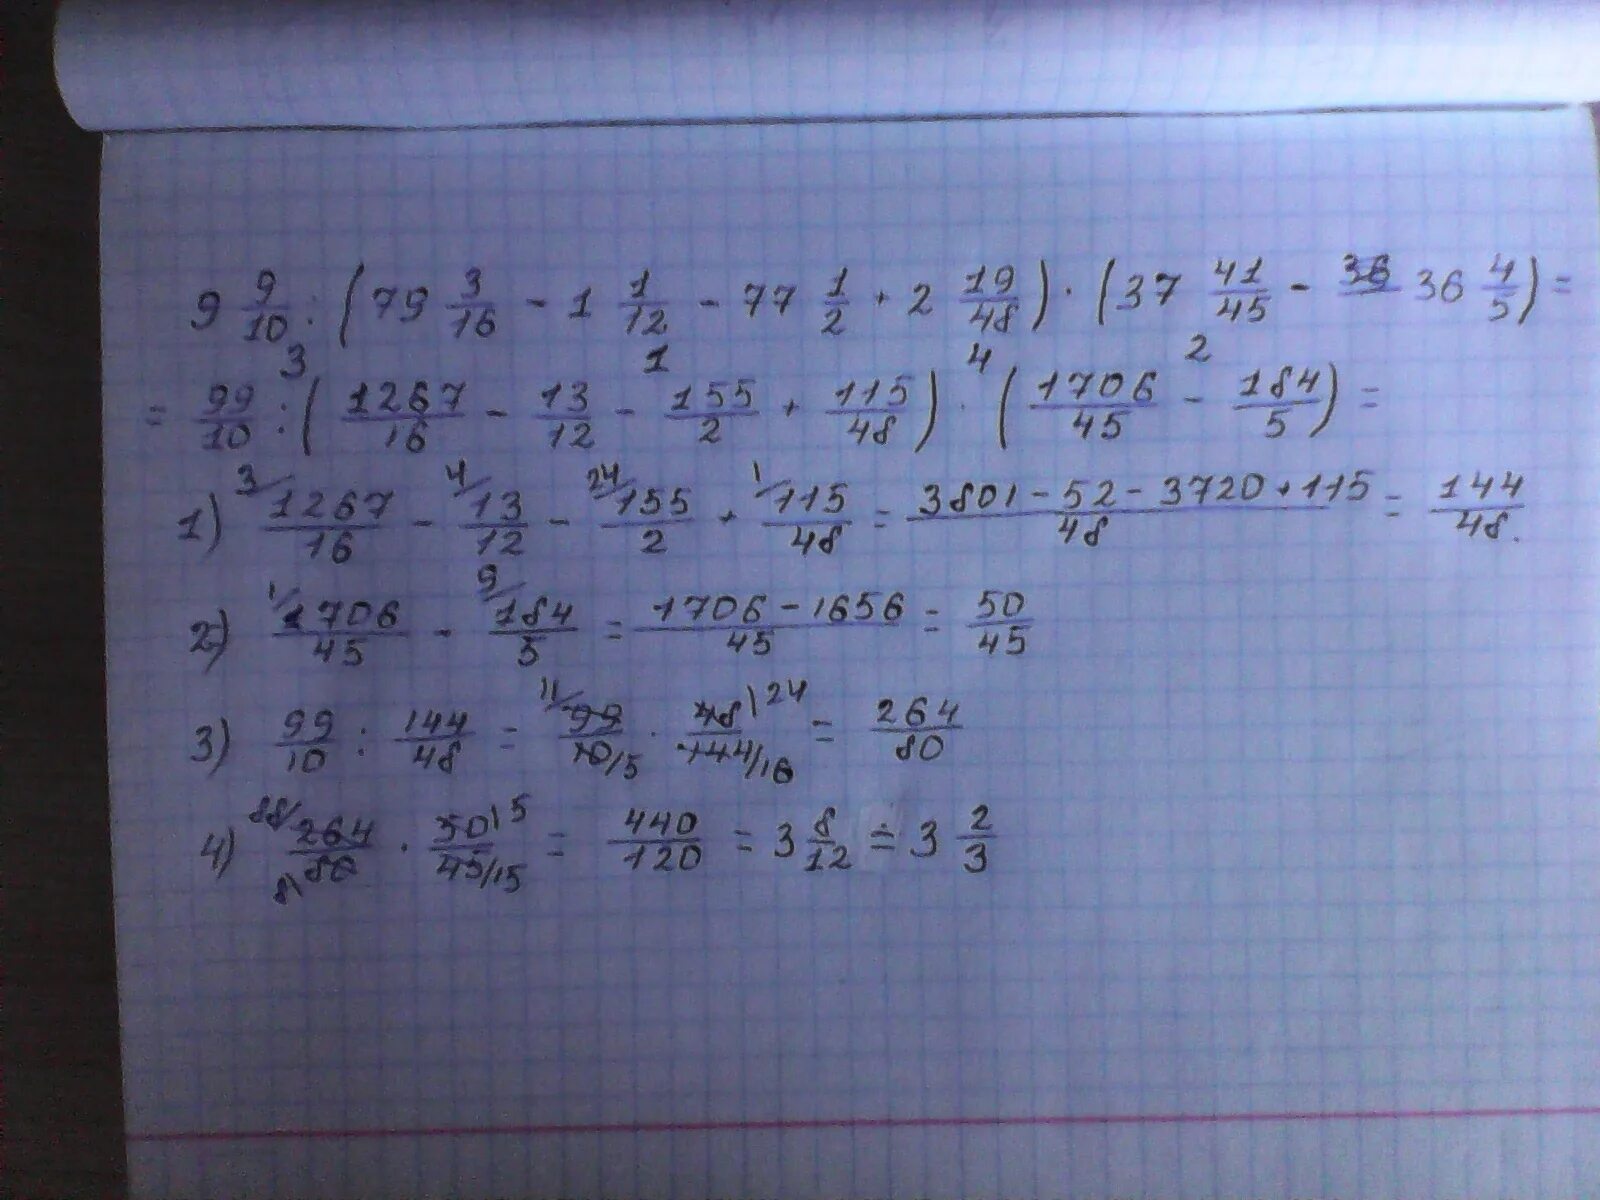 9 9/10 : (79 3/16 - 1 1/12 - 77 1/2 + 2 19/48) · (37 41/45 - 36 36 4/5) =
3 1 4 2
= 99/10 : (1267/16 - 13/12 - 155/2 + 115/48) · (1706/45 - 184/5) =
1) 3/ 1267/16 - 4/ 13/12 - 24/ 155/2 + 1/ 115/48 = (3801 - 52 - 3720 + 115)/48 = 144/48.
2) 1/ 1706/45 - 9/ 184/5 = (1706 - 1656)/45 = 50/45
3) 99/10 : 144/48 = 11/ 99/10 /5 · 48/144 \24 /16 = 264/80
4) 88/ 264/80 8\ · 50/45 \5 /15 = 440/120 = 3 8/12 = 3 2/3